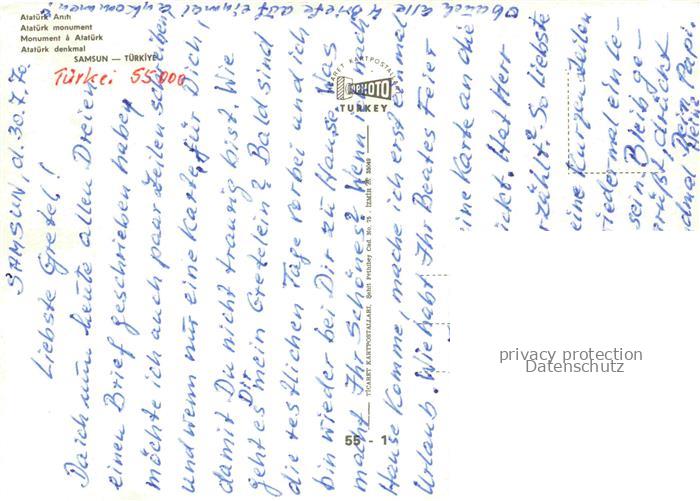 Atatürk Anıtı
Atatürk monument
Monument á Atatürk
Atatürk denkmal
SAMSUN — TÜRKİYE
Türkei 55.000
TICARET KARTPOSTALLARI
COLOR FOTO
TURKEY
TİCARET KARTPOSTALLARI, Şehit Fethibey Cad. No. 75 - İZMİR
55 - 1
privacy protection
Datenschutz
SAMSUN, d. 30.7.70
Liebste Gretel!
Da ich nun heute allen Dreien
einen Brief geschrieben habe,
möchte ich auch paar Zeilen schreiben
und wenn nur eine Karte für Dich,
damit Du nicht traurig bist. Wie
geht es Dir mein Gretelein? Bald sind
die restlichen Tage vorbei und ich
bin wieder bei Dir zu Hause. Was
macht Ihr Schönes? Wenn ich nach
Hause komme, mache ich erst einmal
Urlaub. Wie habt Ihr Beates Feier
ine Karte an die
ickt. Hat Herr
rzählt? So Liebste
eine kurzen Zeilen
iedermal ein le-
sein. Bleib ge-
rüßt, drückt
chmal Dein Papi.
Ob auch alle 4 Briefe auf einmal ankommen?